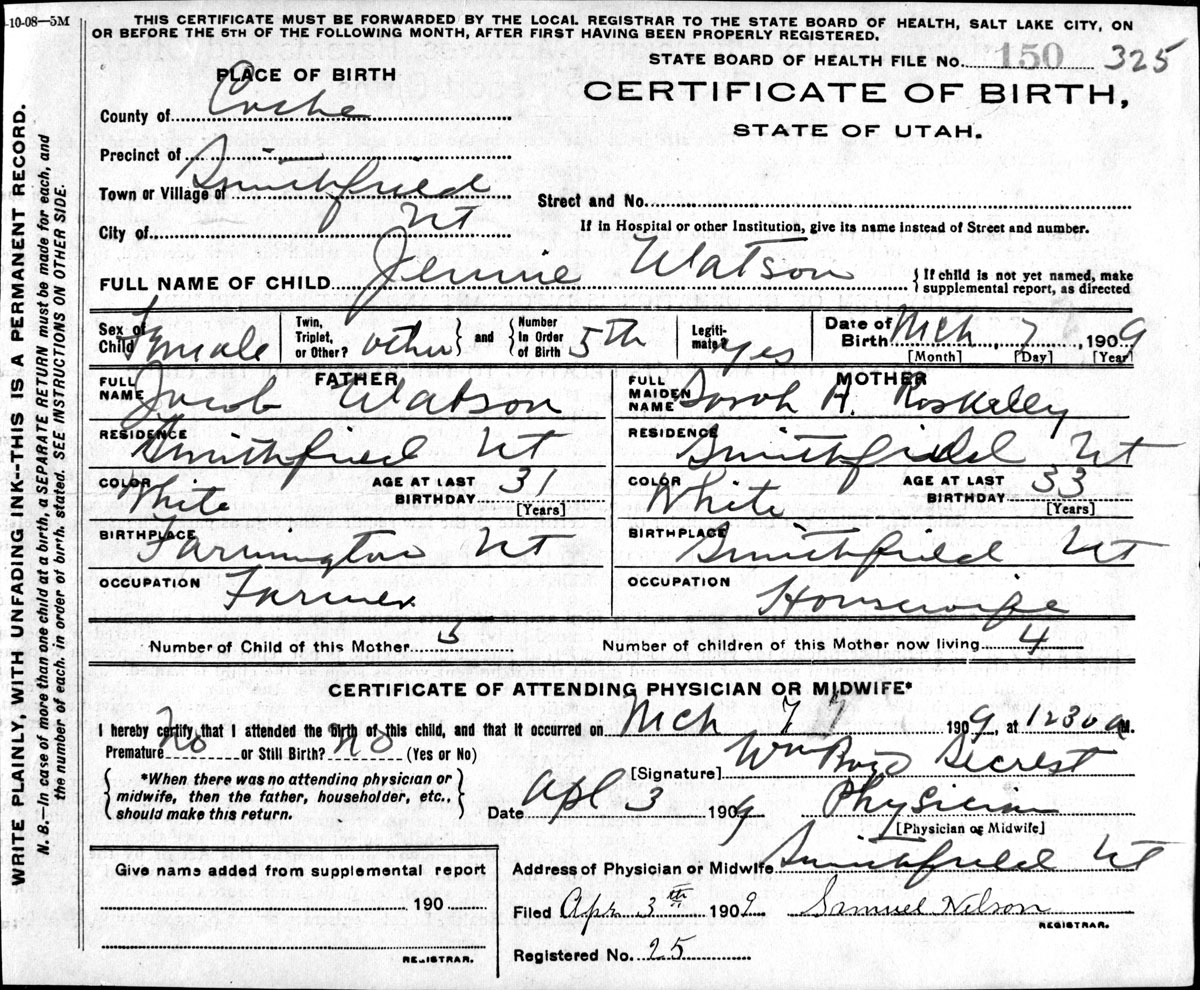 -10-08—5M
THIS CERTIFICATE MUST BE FORWARDED BY THE LOCAL REGISTRAR TO THE STATE BOARD OF HEALTH, SALT LAKE CITY, ON
OR BEFORE THE 5TH OF THE FOLLOWING MONTH, AFTER FIRST HAVING BEEN PROPERLY REGISTERED.
WRITE PLAINLY, WITH UNFADING INK--THIS IS A PERMANENT RECORD.
N. B.—In case of more than one child at a birth, a SEPARATE RETURN must be made for each, and
the number of each. in order of birth. stated. SEE INSTRUCTIONS ON OTHER SIDE.
STATE BOARD OF HEALTH FILE No. 150 325
CERTIFICATE OF BIRTH,
STATE OF UTAH.
PLACE OF BIRTH
County of Cache
Precinct of
Town or Village of Smithfield
City of Ut
Street and No.
If in Hospital or other Institution, give its name instead of Street and number.
FULL NAME OF CHILD Jennie Watson
{If child is not yet named, make
supplemental report, as directed
Sex of Child Female
Twin, Triplet, or Other? other } and { Number In Order of Birth 5th
Legiti-mate? yes
Date of Birth Mch 7, 1909
[Month] [Day] [Year]
FATHER
FULL NAME Jacob Watson
RESIDENCE Smithfield Ut
COLOR White
AGE AT LAST BIRTHDAY 31
[Years]
BIRTHPLACE Farmington Ut
OCCUPATION Farmer
MOTHER
FULL MAIDEN NAME Sarah H. Roskelly
RESIDENCE Smithfield Ut
COLOR White
AGE AT LAST BIRTHDAY 33
[Years]
BIRTHPLACE Smithfield Ut
OCCUPATION Housewife
Number of Child of this Mother 5
Number of children of this Mother now living 4
CERTIFICATE OF ATTENDING PHYSICIAN OR MIDWIFE*
I hereby certify that I attended the birth of this child, and that it occurred on Mch 7 1909, at 1230 a M.
Premature No or Still Birth? No (Yes or No)
{ *When there was no attending physician or
midwife, then the father, householder, etc.,
should make this return. }
[Signature] Wm Boyd Secrest
Date Apl 3 1909 Physician
[Physician or Midwife]
Address of Physician or Midwife Smithfield Ut
Filed Apr 3th 1909 Samuel Nelson
REGISTRAR.
Registered No. 25
Give name added from supplemental report
190
REGISTRAR.